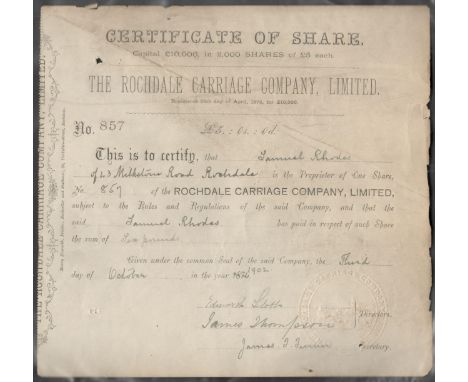 CERTIFICATE OF SHARE.
Capital £10,000, in 2,000 SHARES of £5 each
THE ROCHDALE CARRIAGE COMPANY, LIMITED.
No. 857
£5. : 0s. : 0d.
This is to certify, that Samuel Rhodes
of 43 Milkstone Road Rochdale is the Proprietor of One Share,
No. 867 of the ROCHDALE CARRIAGE COMPANY, LIMITED,
subject to the Rules and Regulations of the said Company, and that the
said Samuel Rhodes has paid in respect of such Share
the sum of pounds
Given under the common Seal of the said Company, the Third
day of October in the year 1902
James Thompson
Directors.
James
Secretary.
THE ROCHDALE CARRIAGE COMPANY, LIMITED.